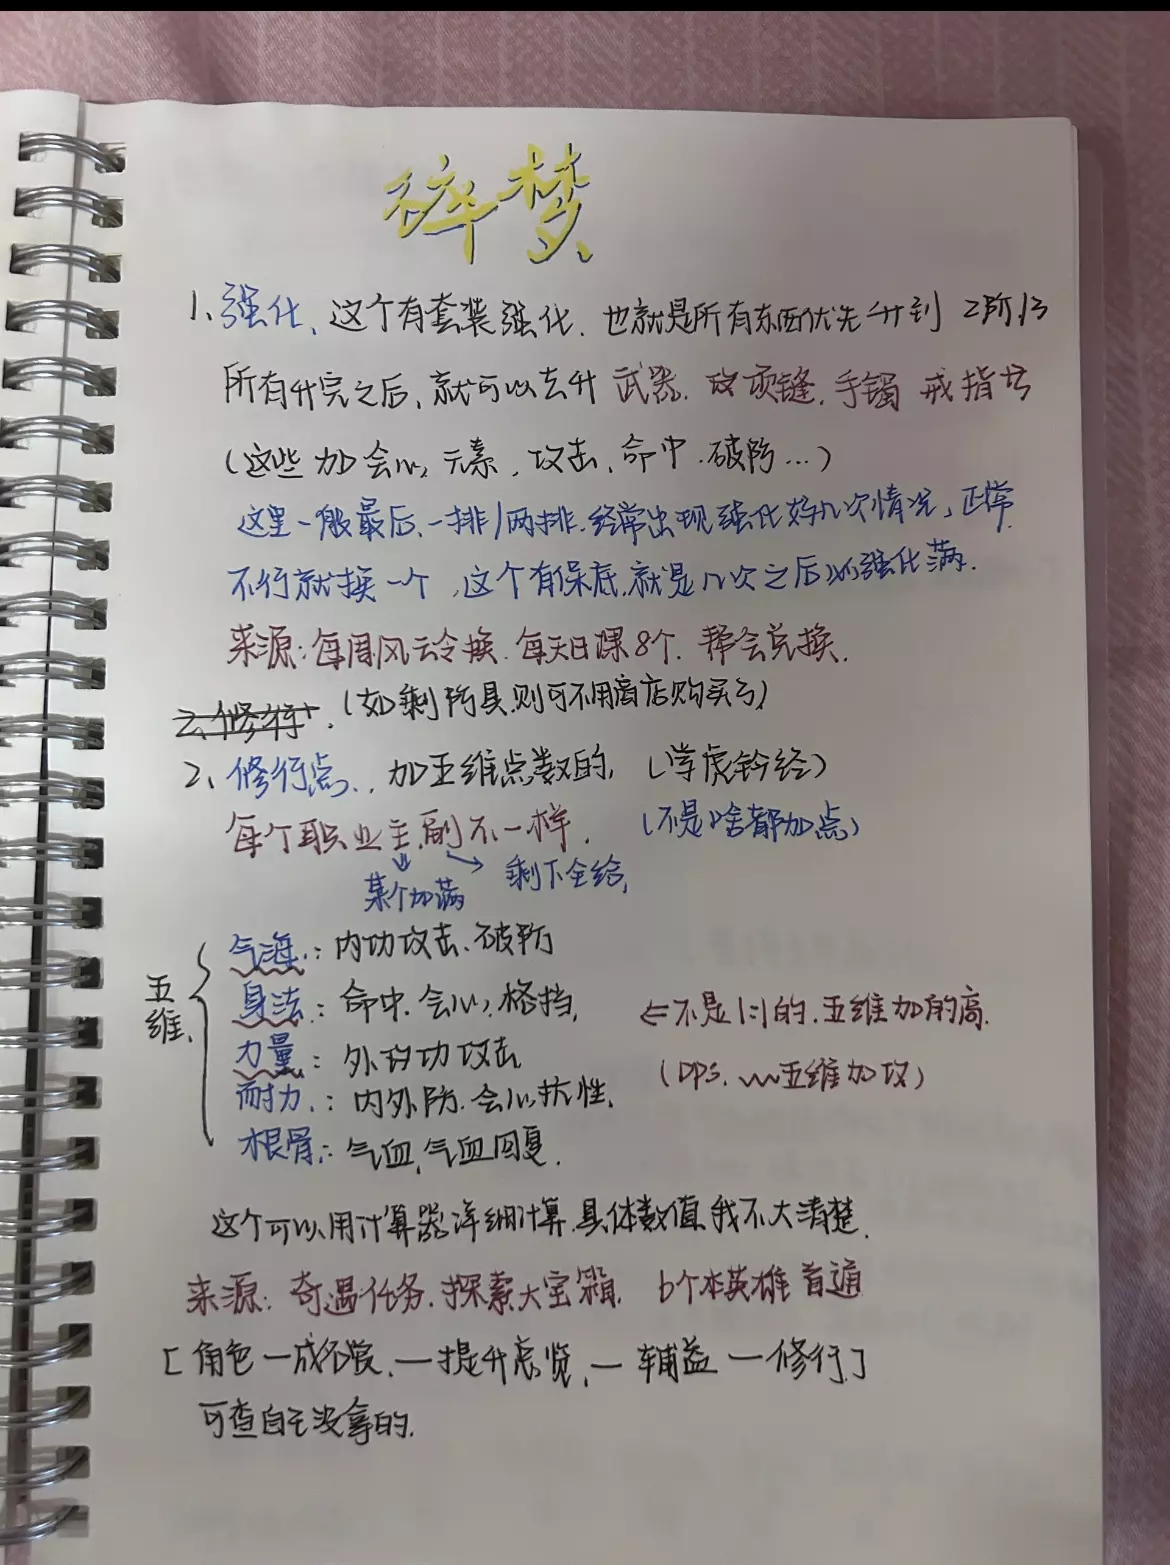 碎梦
1、强化、这个有套装强化.也就是所有东西优先升到 2阶13
所有升完之后、就可以去升 武器. 手镯 戒指
(这些加会心,元素,攻击、命中.破防...)
这里一般最后、一排/两排.经常出现强化好几次情况,正常.
不行就换一个,这个有保底.就是几次之后必强化满.
来源:每周风云令换.每天日课8个. 帮会兑换.
2、修行 .(如剩防具.则可不用商店购买了)
2、修行点., 加五维点数的, (学虎钤经)
每个职业主.副不一样. (不是啥都加点)
某个加满 剩下全给,
五维.
气海.:内功攻击.破防
身法:命中.会心,格挡, ⇐不是1:1的.五维加的高.
力量:外功攻击
(DPS. 五维加攻)
耐力.:内外防.会心抗性.
根骨.:气血,气血回复.
这个可以用计算器详细计算.具体数值.我不大清楚.
来源:奇遇任务.探索大宝箱. 6个本英雄首通
[角色一成一览、一提升总览、一辅益一修行]
可查自己没拿的.